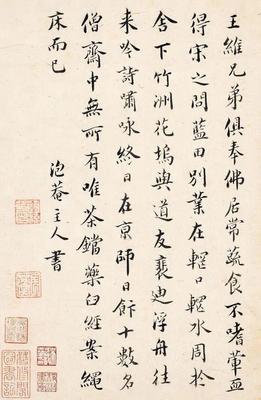 王維兄弟俱奉佛居常蔬食不嗜葷血
得宋之問藍田別業在輞口輞水周於
舍下竹洲花塢與道友裴迪浮舟往
来吟詩嘯咏終日在京師日飰十數名
僧齋中無所有唯茶鐺藥臼經案繩
床而已
泡菴主人書